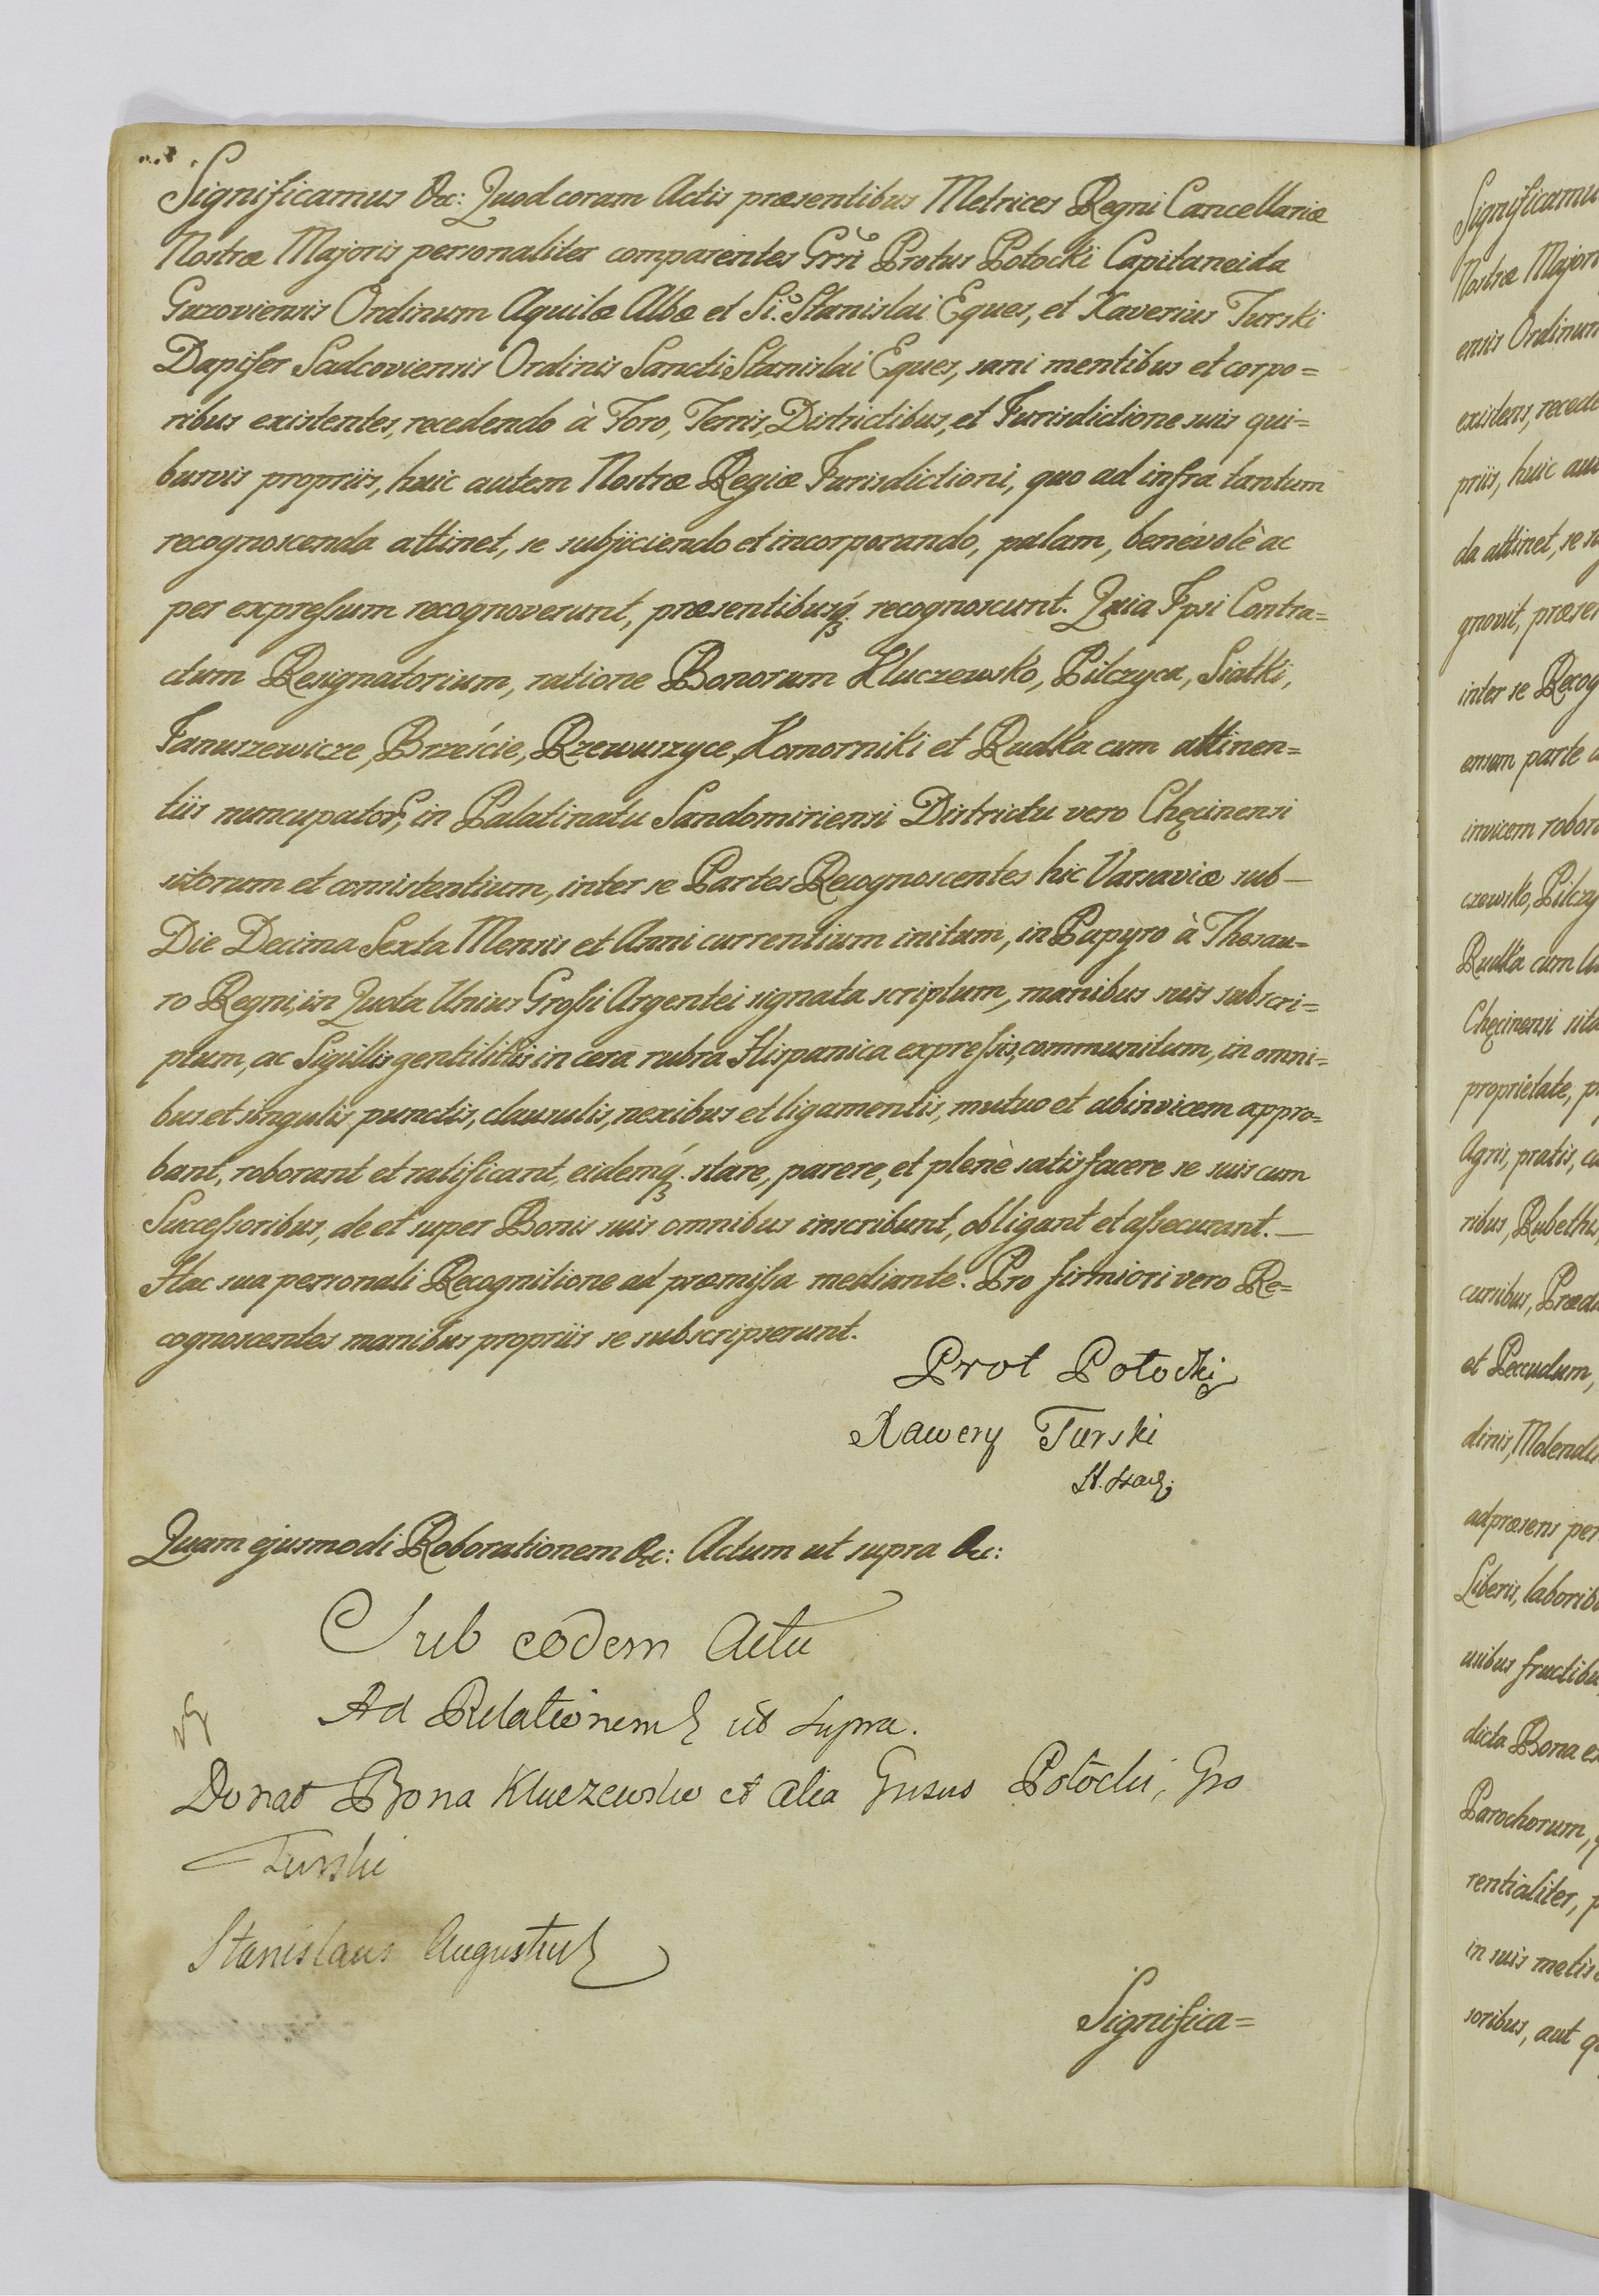 Significamus &c: Quod coram Actis præsentibus Metrices Regni Cancellariæ
Nostræ Majoris personaliter comparentes Grsi Protus Potocki Capitaneida
Guzoviensis Ordinum Aquilæ Albæ et Si. Stanislai Eques, et Xaverius Turski
Dapifer Sadcoviensis Ordinis Sancti Stanislai Eques, sani mentibus et corpo=
ribus existentes, recedendo à Foro, Terris, Districtibus, et Jurisdictione suis qui=
busvis propriis, huic autem Nostræ Regiæ Jurisdictioni, quo ad infra tantum
recognoscenda attinet, se subjiciendo et incorporando, palam, benevolè ac
per expressum recognoverunt, præsentibusq́ recognoscunt. Quia Ipsi Contra=
ctum Resignatorium, ratione Bonorum Kluczewsko, Pilczyca, Siatki,
Januszewicze, Brzeście, Rzewuszyce, Komorniki et Rudka cum attinen=
tiis nuncupator, in Palatinatu Sandomiriensi Districtu vero Chęcinensi
sitorum et consistentium, inter se Partes Recognoscentes hic Varsaviæ sub—
Die Decima Sexta Mensis et Anni currentium initum, in Papyro à Thesau=
ro Regni, in Quota Unius Grossi Argentei signata scriptum, manibus suis subscri=
ptum, ac Sigillis gentilitiis in cera rubra Hispanica expressis, communitum, in omni=
bus et singulis punctis, clausulis, nexibus et ligamentis, mutuo et abinvicem appro=
bant, roborant et ratificant, eidemq́. stare, parere, et plenè satisfacere se suis cum
Successoribus, de et super Bonis suis omnibus inscribunt, obligant et assecurant.—
Hac sua personali Recognitione ad præmissa mediante. Pro firmiori vero Re=
cognoscentes manibus propriis se subscripserunt.
Prot Potocki
Xawery Turski
Quam ejusmodi Roborationem &c: Actum ut supra &c:
Sub eodem Actu
Ad Relationem ut supra.
Donat Bona Kluczewsko et alia Gnsus Potocki, Gso
Turski
Stanislaus Augustus
Significa=
Significamu
Nostræ Majori
ensis Ordinum
existens, recede
priis, huic aut
da attinet, se su
gnovit, præsen
inter se Recog
ensem parte a
invicem robora
czewsko, Pilczy
Rudka cum A
Chęcinensi sito
proprietate, p
Agris, pratis, ca
ribus, Rubethis
curribus, Præda
et Peccudum,
dinis, Molendi
ad præsens per
Liberis, laboribu
usibus fructibu
dicta Bona ex
Parochorum, q
rentialiter, p
in suis metis
soribus, aut q